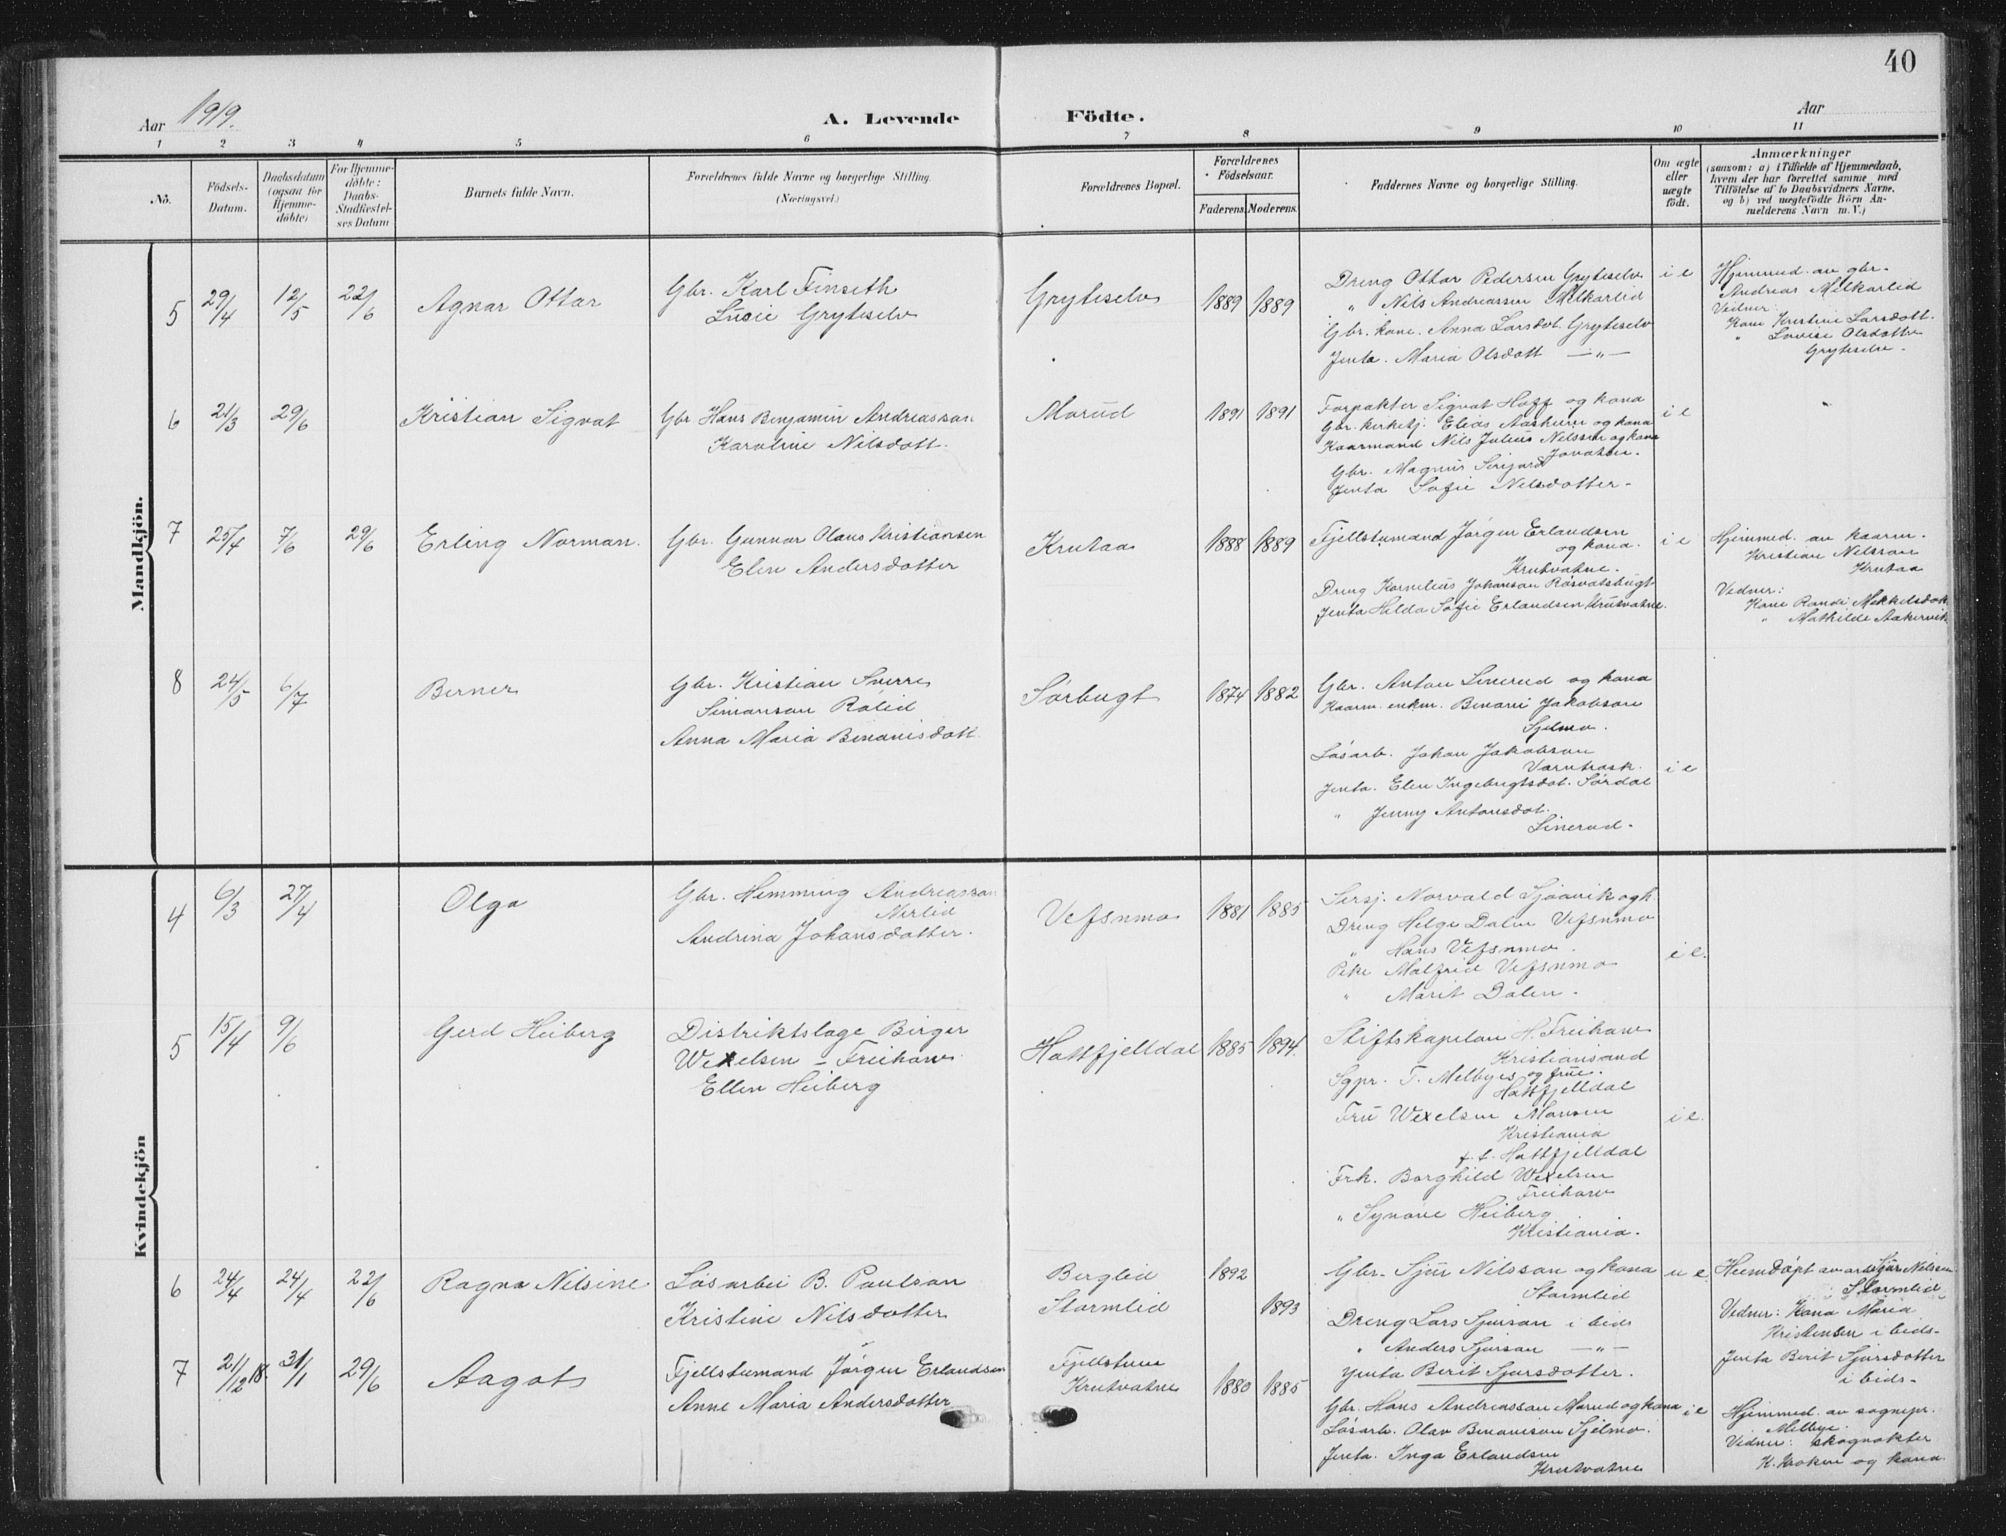 40
Aar 1919.
A. Levende Födte.
Aar
1 2 3 4 5 6 7 8 9 10 11
No.
Födsels-
Datum.
Daabsdatum
(ogsaa for
Hjemme-
döbte)
For Hjemme-
döbte:
Daabs-
Stadfestel-
ses Datum
Barnets fulde Navn.
Forældrenes fulde Navne og borgerlige Stilling.
(Næringsvei.)
Forældrenes Bopæl.
Forældrenes
Födselsaar.
Faderens. Moderens.
Faddernes Navne og borgerlige Stilling.
Om ægte
eller
uægte
födt.
Anmærkninger
(saasom: a) i Tilfælde af Hjemmedaab,
hvem der har forrettet samme, med
Tilföielse af to Daabsvidners Navne,
og b) ved uægtefödte Börn An-
melderens Navn m. V.)
Mandkjön.
5 29/4 12/5 22/6 Agnar Ottar
Gbr. Karl Finseth
Lusie Gryteselv
Gryteselv 1889 1889
Dreng Ottar Pedersen Gryteselv
" Nils Andreassen Melkarlid
Gbr. kone. Anna Larsdot. Gryteselv
Jenta. Maria Olsdott —"—
i e
Hjemmed. av gbr.
Andreas Melkarlid
Vedner:
Kone Kristine Larsdott.
" Lovise Olsdotter
Gryteselv.
6 21/3 29/6 Kristian Sigvat
Gbr Hans Benjamin Andreassan
Karoline Nilsdott.
Marud 1891 1891
Forpakter Sigvat Hoff og kona
Gbr. kirketj. Elias Aashem og kona
Kaarmand Nils Julius Nilssen og kona
Gbr. Magnus
Jenta Sofie Nilsdotter.
i e
7 25/4 7/6 29/6 Erling Norman.
Gbr. Gunnar Olaus Kristiansen
Elen Andersdotter
Krutaa 1888 1889
Fjellstumand Jørgen Erlandsen
og kona.
Krutvatne.
Dreng Kornelius Johansan Røsvatsbugt
Jenta Hilda Sofie Erlandsen Krutvatne.
i e
Hjemmed. av kaarm.
Kristian Nilssan
Krutaa
Vedner:
Kone Randi Mekkelsdot
" Mathilde Aakervik
8 24/5 6/7 Berner
Gbr. Kristian Snerre
Simonsan Rølid
Anna Maria Benonisdott.
Sørbugt 1874 1882
Gbr. Anton Linerud og kona
Kaarm. enkm. Benoni Jakobsan
Sjelmo.
Løsarb. Johan Jakobsan
Varntrask.
Jenta. Elen Ingebrigtsdot. Sørdal
" Jenny Antonsdot.
Linerud.
i e
Kvindekjön
4 6/3 27/4 Olga
Gbr. Hemming Andreassan
Nerlid
Andrina Johansdotter.
Vefsnmo 1881 1885
Sersj. Norvald Sjåavik og k.
Dreng Helge Dalen Vefsnmo
" Hans Vefsnmo.
Pike Malfrid Vefsnmo
" Marit Dalen.
i e.
5 15/4 9/6 Gerd Heiberg
Distriktslæge Birger
Wexelsen – Freihow
Ellen Heiberg
Hattfjelldal 1885 1894.
Stiftskapelan H. Freihow
Kristiansand
Sgpr. T. Melbyes og frue.
Hattfjelldal
Fru Wexelsen Monsen
Kristiania
f. t. Hattfjelldal
Frk. Borghild Wexelsen
Freihow
" Synøve Heiberg
Kristiania.
i e.
6 24/4 24/4 22/6 Ragna Nilsine
Løsarbei B. Paulsan
Kristine Nilsdotter
Berglid 1892
Stormlid 1893
Gbr. Sjur Nilssan og kona
Stormlid
Dreng Lars Sjursan i beds
" Anders Sjursan —"—
Jenta Berit Sjursdotter.
u e
Heimdøpt av arb. Sjur Nilssen
Stormlid
Vedner: Kona Maria
Kristensen i beds.
Jenta Berit Sjursdotter
i beds.
7 21/12 18. 31/1 29/6 Aagot
Fjellstumand Jørgen Erlandsen
Anne Maria Andersdotter
Fjellstuen
Krutvatne 1880 1885
Gbr. Hans Andreassan Marud og kona
Løsarb. Olav Benonisen Sjelmo.
Jenta. Inga Erlandsen
Krutvatne
i e
Hjemmed. av sognepr.
Melbye.
Vedner: skogvokter
K. Kroken og kona.